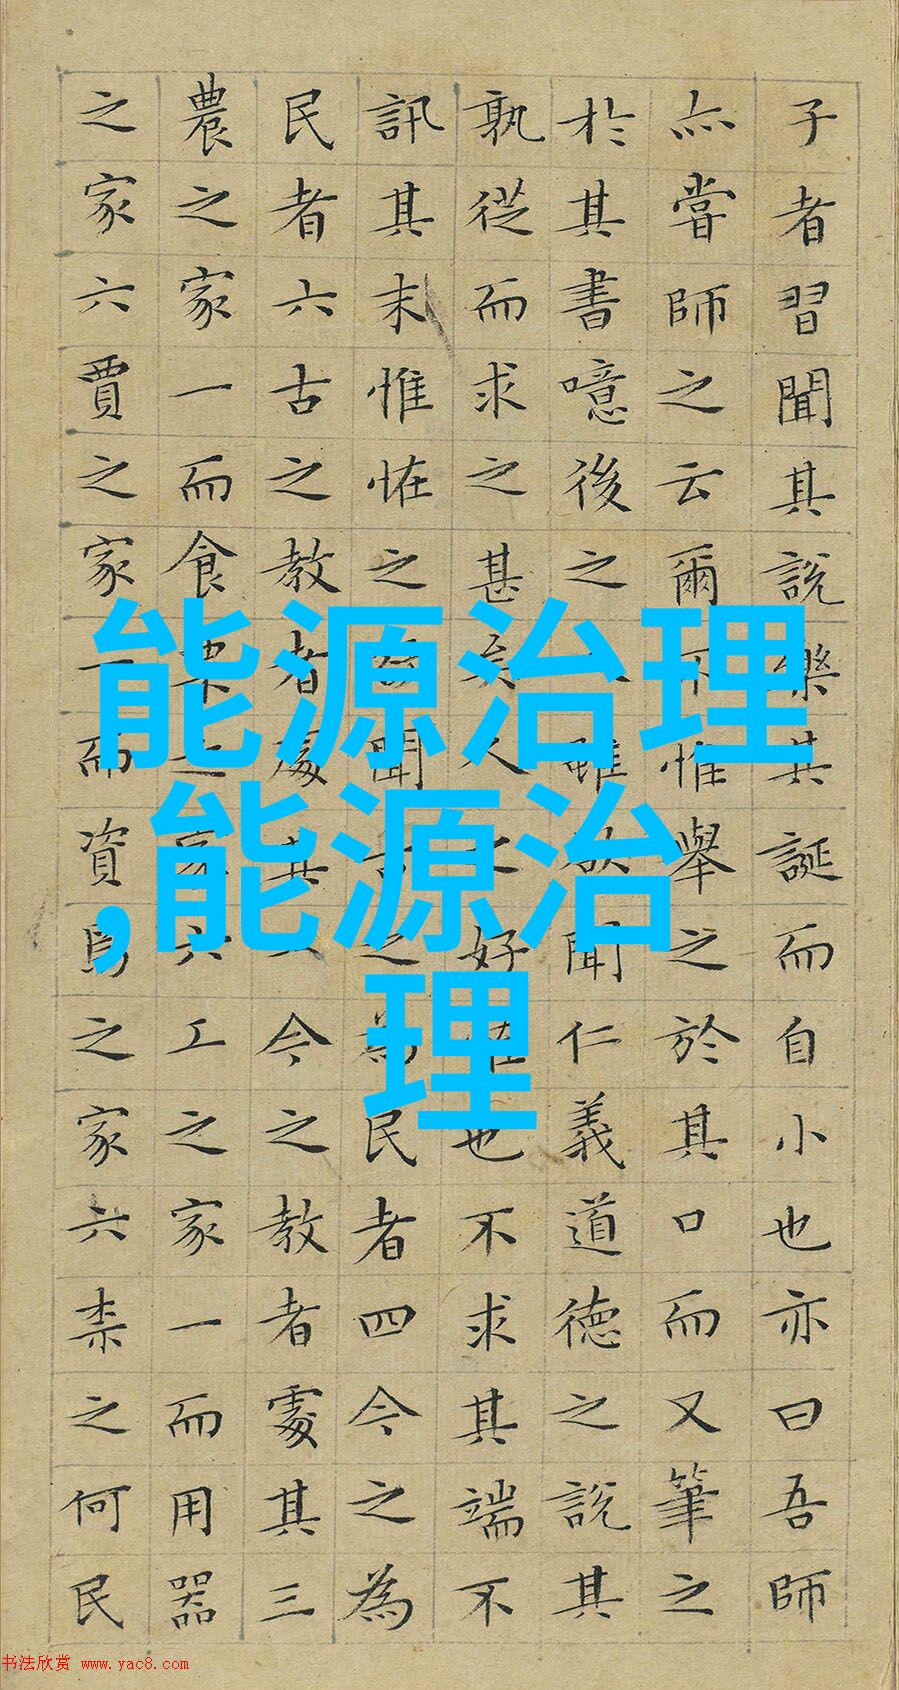 子者習聞其說樂其誕而自小也亦曰吾師
亦嘗師之云爾不惟舉之於其口而又筆之
於其書噫後之人雖欲聞仁義道德之說其
孰從而求之甚矣人之好恠也不求其端不
訊其末惟恠之欲聞古之為民者四今之為
民者六古之教者處其一今之教者處其三
農之家一而食粟之家六工之家一而用器
之家六賈之家一而資焉之家六柰之何民
能源治理
,能源治
理
书法欣赏 www.yac8.com